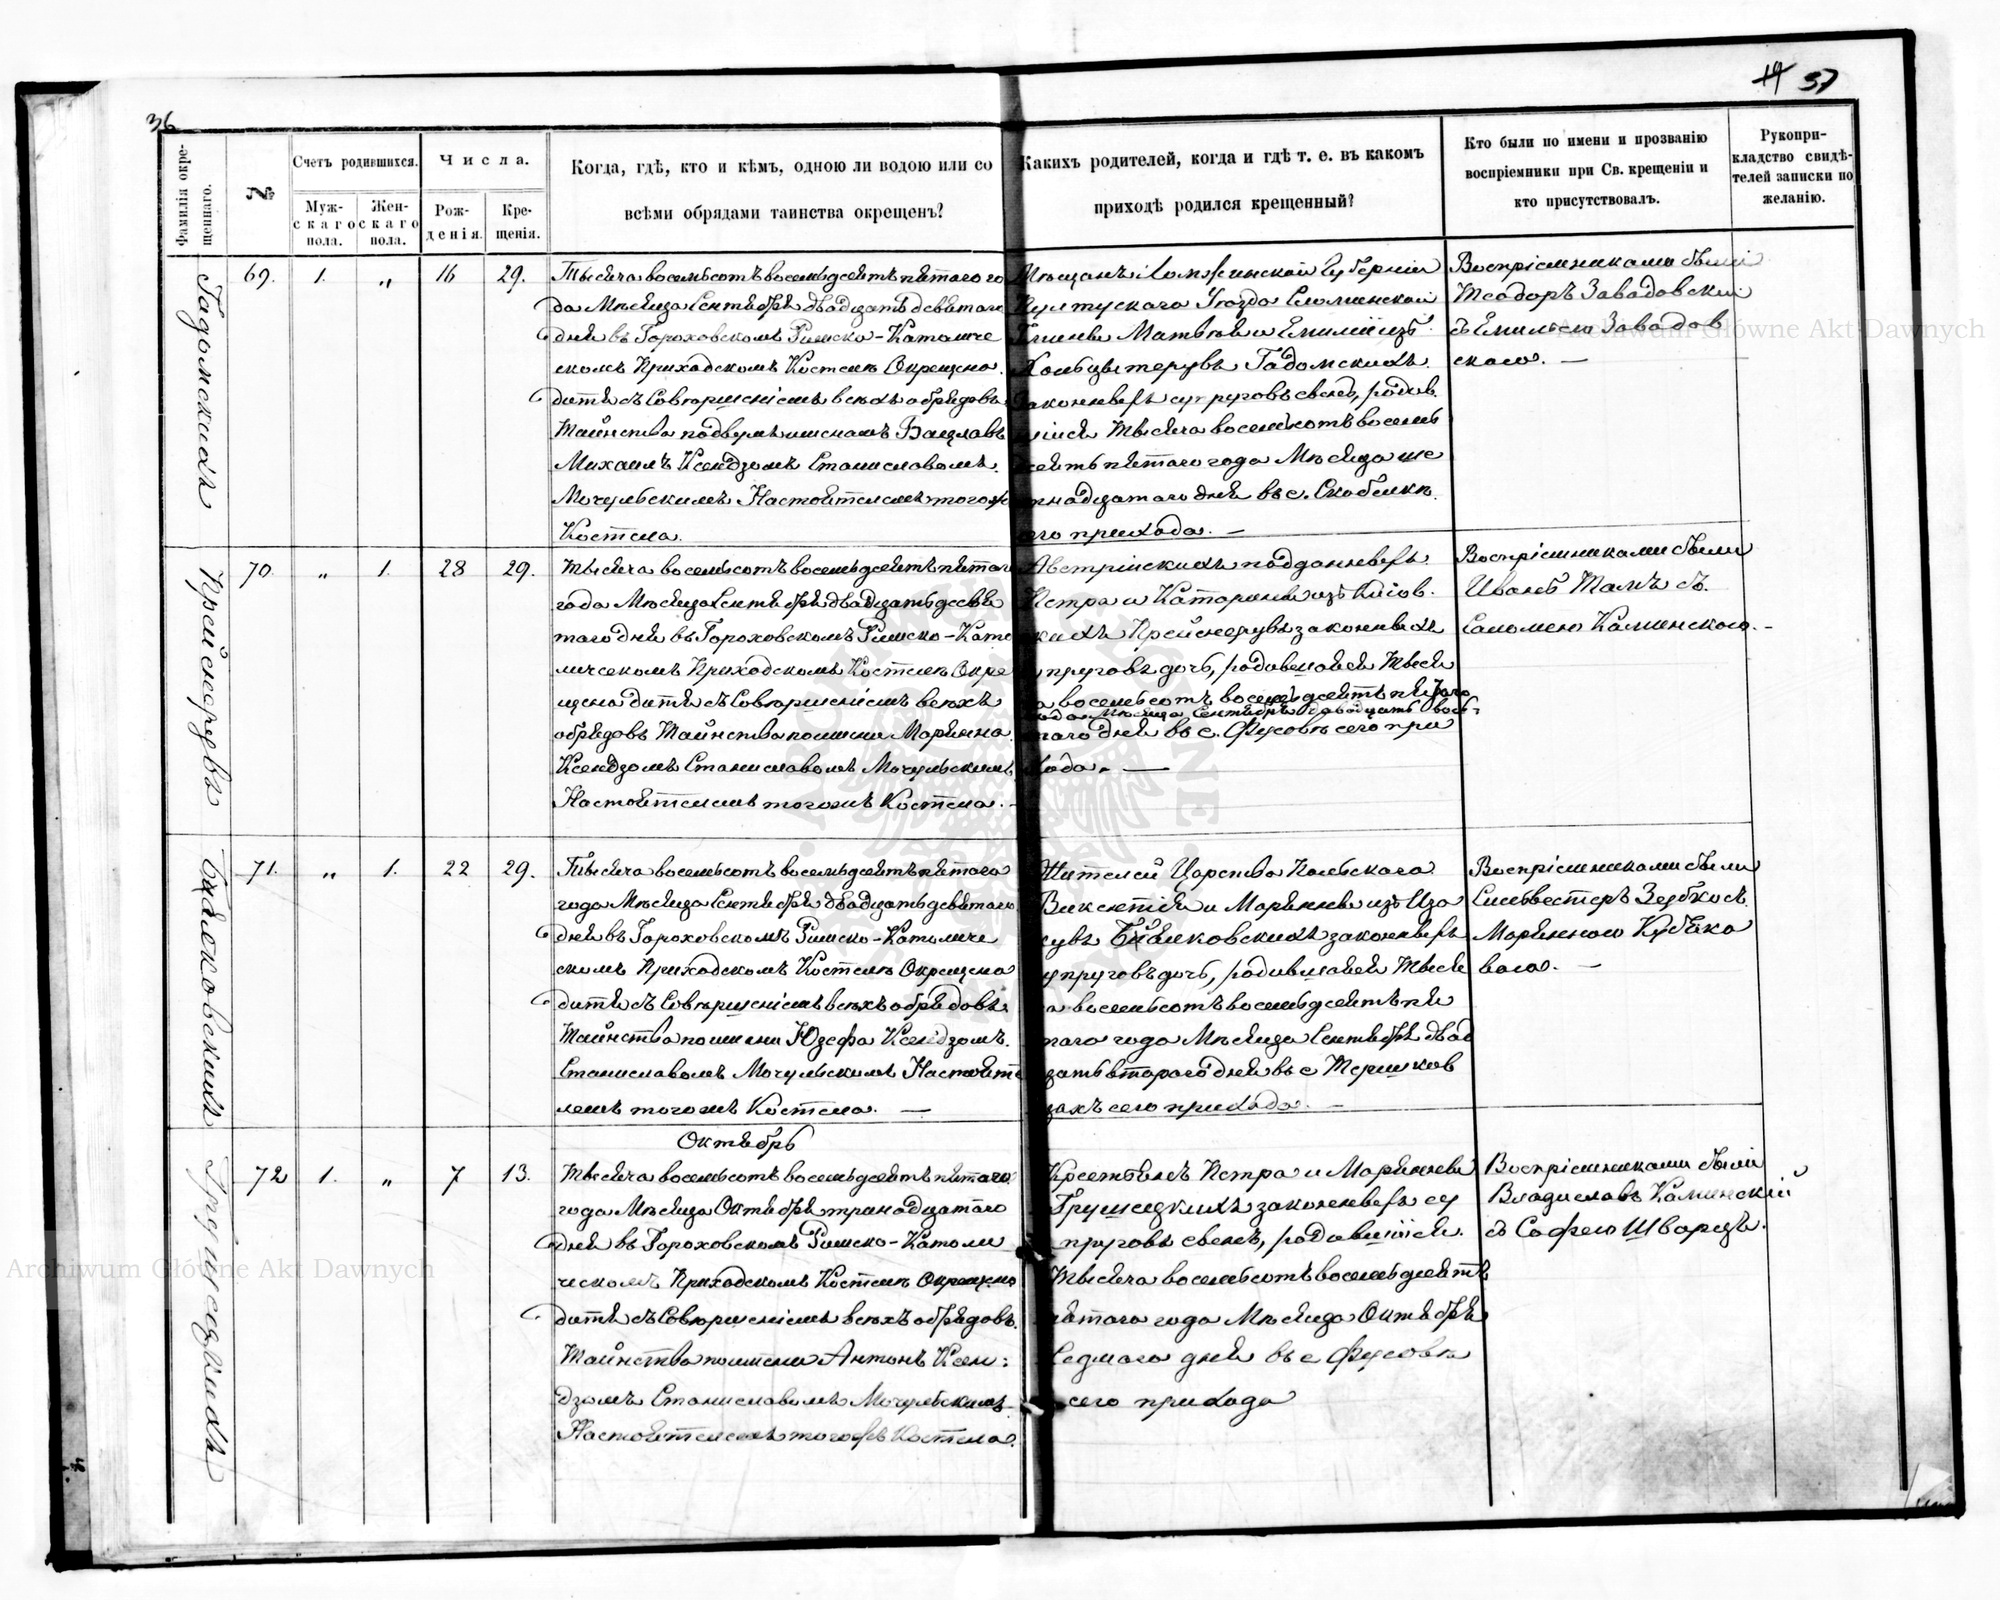 36
19 37
Фамилія окре-
щеннаго.
№
Счетъ родившихся.
Муж-
скаго
пола.
Жен-
скаго
пола.
Числа.
Рож-
денія.
Кре-
щенія.
Когда, гдѣ, кто и кѣмъ, одною ли водою или со
всѣми обрядами таинства окрещенъ?
Какихъ родителей, когда и гдѣ т. е. въ какомъ
приходѣ родился крещенный?
Кто были по имени и прозванію
воспріемники при Св. крещеніи и
кто присутствовалъ.
Рукопри-
кладство свидѣ-
телей записки по
желанію.
Гадомскихъ
69. 1. „ 16 29.
Тысяча восемьсотъ восемьдсятъ пятаго го
да Мѣсяца Сентября двадцать девятаго
дня въ Гороховскомъ Римско-Католиче
скомъ Приходскомъ Костелѣ Окрещена
дитя съ Совершеніемъ всѣхъ обрядовъ
Таинства подвумя именамъ Вацлавъ
Михаилъ Ксендзомъ Станиславомъ
Мочульскимъ Настоятелемъ тогож
Костела.
Мѣщанъ Ломжинской Губерніи
Пултускаго Уѣзда
Гмины Матвѣя и Емиліи изъ
Гадомскихъ
законныхъ супруговъ сынъ, родив
шійся тысяча восемьсотъ восемь
десятъ пятаго года Мѣсяца ше
стнадцатаго дня въ с. Скобелкѣ
сего прихода. —
Воспріемниками были
Теодоръ Завадовскій
съ Емилью Завадов
скою. —
Прейснеровъ
70. „ 1. 28 29.
Тысяча восемьсотъ восемьдсятъ пятаго
года Мѣсяца Сентября двадцать девя
таго дня въ Гороховскомъ Римско-Като
лическомъ Приходскомъ Костелѣ Окре
щена дитя съ Совершеніемъ всѣхъ
обрядовъ Таинства по имени Марянна
Ксендзомъ Станиславомъ Мочульскимъ
Настоятелемъ тогожъ Костела. —
Австрійскихъ подданныхъ
Петра и Катарины изъ
Прейснеровъ законныхъ
супруговъ дочь, родившаяся Тыся
ча восемьсотъ восемьдсятъ пятаго
года Мѣсяца Сентября двадцать вось
маго дня въ с. Фусовѣ сего при
хода. —
Воспріемниками были
Иванъ съ
Саломею Каминскою. —
Бялковскихъ
71. „ 1. 22 29.
Тысяча восемьсотъ восемьдсятъ пятаго
года Мѣсяца Сентября двадцать девятаго
дня въ Гороховскомъ Римско-Католиче
скомъ Приходскомъ Костелѣ Окрещена
дитя съ Совершеніемъ всѣхъ обрядовъ
Таинства по имени Юзефа Ксендзомъ
Станиславомъ Мочульскимъ Настояте
лемъ тогожъ Костела. —
Жителей Царства Польскаго
Викентія и Марянны изъ
Бялковскихъ законныхъ
супруговъ дочь, родившаяся Тыся
ча восемьсотъ восемьдсятъ пя
таго года Мѣсяца Сентября двад
цать втораго дня въ с
сего прихода. —
Воспріемниками были
Сильвестеръ съ
Марянною
—
Октябрь
Грушецкихъ
72 1. „ 7 13.
Тысяча восемьсотъ восемьдсятъ пятаго
года Мѣсяца Октября тринадцатаго
дня въ Гороховскомъ Римско-Католи
ческомъ Приходскомъ Костелѣ Окрещено
дитя съ Совершеніемъ всѣхъ обрядовъ
Таинства по имени Антонъ Ксен:
дзомъ Станиславомъ Мочульскимъ
Настоятелемъ тогожъ Костела.
Крестьянъ Петра и Марянны
Грушецкихъ законныхъ су
пруговъ сынъ, родившійся
Тысяча восемьсотъ восемьдсятъ
пятаго года Мѣсяца Октября
Седмаго дня въ с Фусовѣ
сего прихода
Воспріемниками были
Владиславъ Каминскій
съ Софею Шварцъ.
Archiwum Główne Akt Dawnych
Archiwum Główne Akt Dawnych